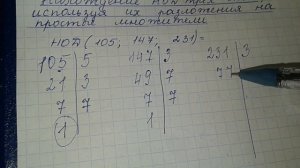 нахождение НОД трёх
используя их разложения на
простые множители
НОД (105; 147; 231)=
105 | 5 147 | 3 231 | 3
21 | 3 49 | 7 77
7 | 7 7 | 7
1 1